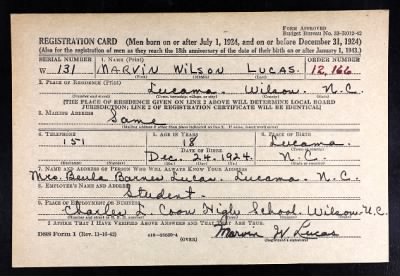 FORM APPROVED
Budget Bureau No. 33-R012-42
REGISTRATION CARD (Men born on or after July 1, 1924, and on or before December 31, 1924)
(Also for the registration of men as they reach the 18th anniversary of the date of their birth on or after January 1, 1943.)
SERIAL NUMBER 1. NAME (Print) ORDER NUMBER
W 131 MARVIN WILSON LUCAS. 12,166
(First) (Middle) (Last)
2. PLACE OF RESIDENCE (Print)
Lucama. Wilson. N.C.
[THE PLACE OF RESIDENCE GIVEN ON LINE 2 ABOVE WILL DETERMINE LOCAL BOARD
JURISDICTION; LINE 2 OF REGISTRATION CERTIFICATE WILL BE IDENTICAL]
3. MAILING ADDRESS
Same
4. TELEPHONE 5. AGE IN YEARS 6. PLACE OF BIRTH
151 18 Lucama.
DATE OF BIRTH
Dec. 24. 1924. N.C.
7. NAME AND ADDRESS OF PERSON WHO WILL ALWAYS KNOW YOUR ADDRESS
Mrs. Beula Barnes Lucas. Lucama. N.C.
8. EMPLOYER'S NAME AND ADDRESS
Student.
9. PLACE OF EMPLOYMENT OR BUSINESS
Charles L. Coon High School. Wilson. N.C.
I AFFIRM THAT I HAVE VERIFIED ABOVE ANSWERS AND THAT THEY ARE TRUE.
DSS Form 1 (Rev. 11-16-42) (OVER) Marvin W Lucas
(Registrant's signature)